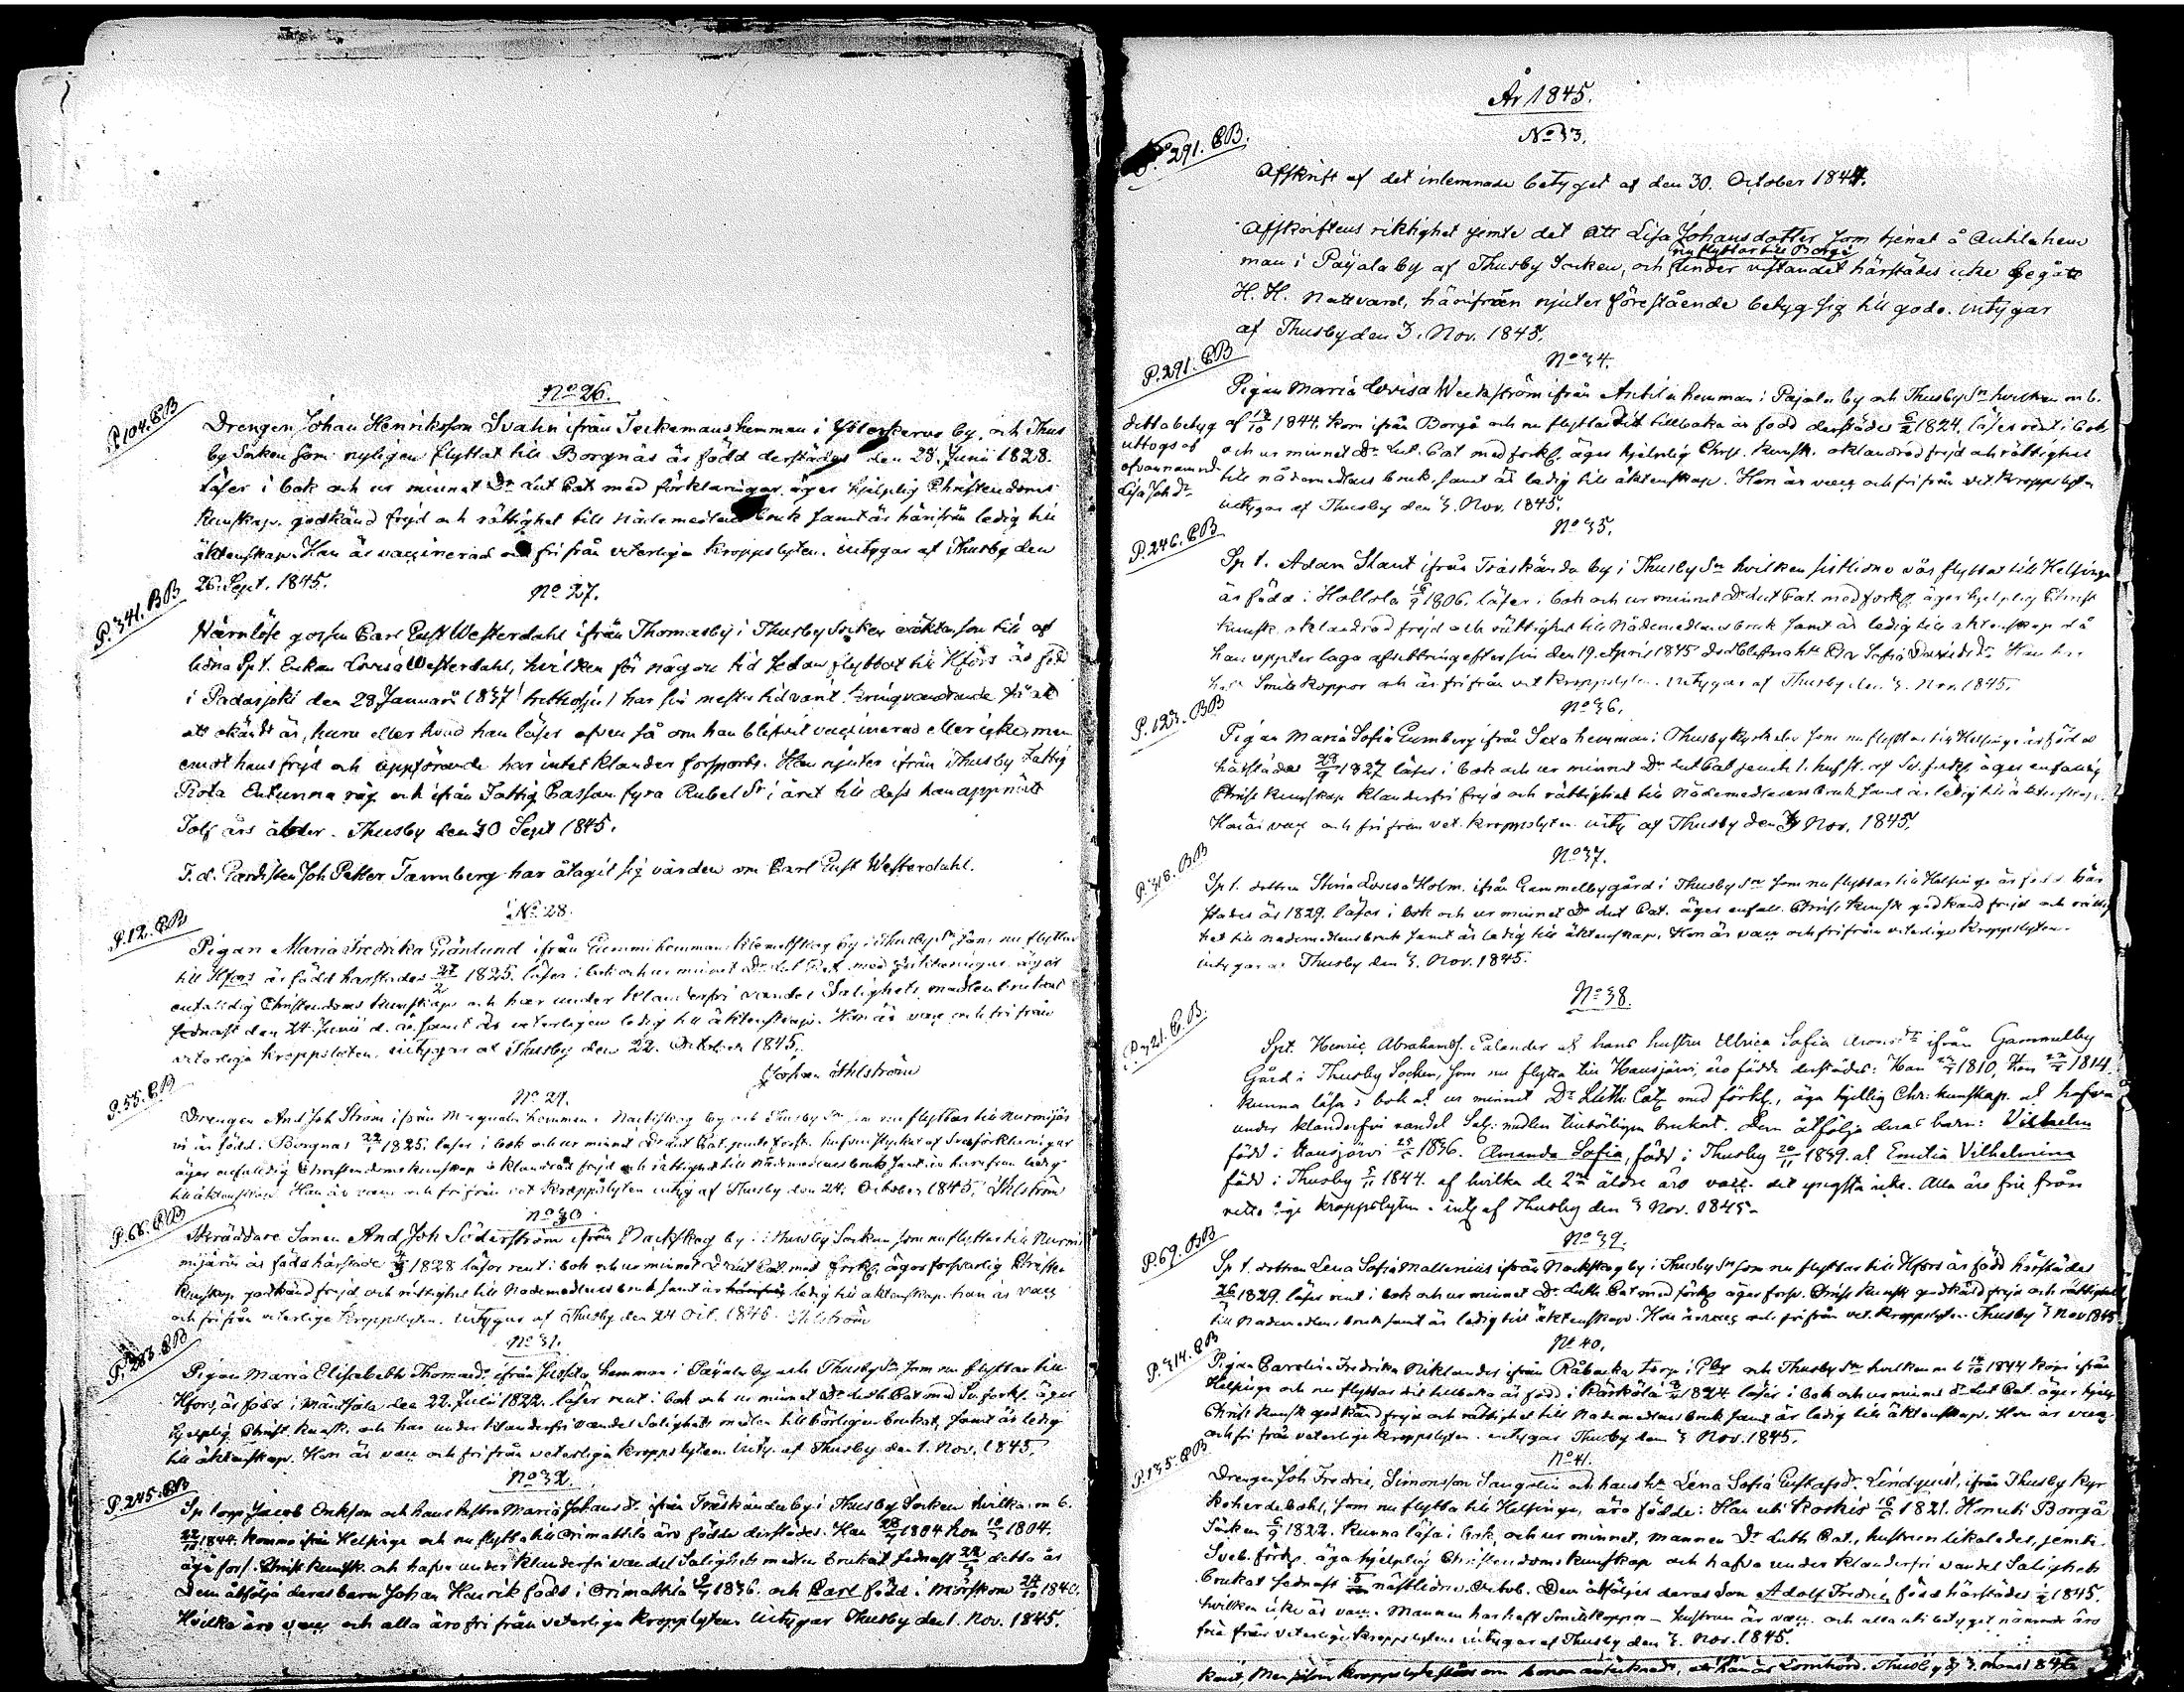 No 26.
P. 104. CB
Drengen Johan Henriksson Svahn ifrån Teckemans hemman i Ylöskervo by, och Thus
by Socken som nyligen flyttat till Borgnäs är född derstädes den 28. Junii 1828.
läser i bok och ur minnet Dr Lut Cat. med förklaringar, äger hjelplig Christendoms
kunskap, godkänd frejd och rättighet till Nådemedlens bruk samt är härifrån ledig till
äktenskap. Han är vaccinerad och fri från veterliga kroppslyten. intygar af Thusby den
26. Sept. 1845.
No 27.
P. 341. BB
Wärnlöse gossen Carl Gust Westerdahl ifrån Thomasby i Thusby Socken son till af
lidna Spt. Enkan Lovisa Westerdahl, hvilken för någon tid sedan flyttat till Hfors är född
i Padasjoki den 28 Januarii 1837 har sin mesta tid varit kringvandrande så att
okändt är, hure eller hvad han läser afven så om han blifvit vaccinerad eller icke, men
emot hans frejd och uppförande har intet klander försports. Han njuter ifrån Thusby Fattig
Rota En tunna råg och ifrån Fattig Cassan fyra Rubel Sr i året till dess han uppnått
Tolf års ålder. Thusby den 30 Sept 1845.
F.d. Gardisten Joh Petter Tammberg har åtagit sig vården om Carl Gust Westerdahl.
No 28.
P. 12. CB
Pigan Maria Fredrika Grönlund ifrån Gummi hemman by i Thusby Sn, som nu flyttar
till Hfors är född härstädes 27/2 1825. läser i bok och ur minnet Dr Lut Cat. med förklaringar äger
enfaldig Christendoms kunskap och har under klanderfri vandel Salighets medlen brukat
sednast den 24. Junii d. å. samt är veterligen ledig till äktenskap. Hon är vacc och fri från
veterliga kroppslyten. intygar af Thusby den 22. October 1845.
Johan Ahlström
No 29.
P. 55. CB
Drengen And Joh Ström ifrån hemman i Nackskog by och Thusby Sn som nu flyttar till Nurmijär
vi är född i Borgnäs 1825. läser i bok och ur minnet Dr Lut Cat. jemte
äger enfaldig Christendomskunskap oklandrad frejd och rättighet till Nådemedlens bruk samt är härifrån ledig
till äktenskap. Han är vacc och fri från vet kroppslyten intyg af Thusby den 24. October 1845. Ahlström
No 30.
P. 66. CB
Skräddare Sonen And Joh Söderström ifrån Nackskog by i Thusby Socken som nu flyttar till Nurmi
mijärvi är född härstädes 1828 läser rent i bok och ur minnet Dr Lut Cat. med förkl. äger försvarlig Christ.
kunskap godkänd frejd och rättighet till Nådemedlens bruk samt är härifrån ledig till äktenskap. han är vacc
och fri från veterliga kroppslyten. intygar af Thusby den 24 Oct. 1845. Ahlström
No 31.
P. 283. CB
Pigan Maria Elisabeth Thomasdr. ifrån hemman i Pajala by och Thusby Sn som nu flyttar till
Hfors, är född i Mäntsälä den 22. Julii 1822. läser rent i bok och ur minnet Dr Luth. Cat med Sv. förkl. äger
hjelplig Christ. kunsk. och har under klanderfri vandel Salighets medlen tillbörligen brukat, samt är ledig
till äktenskap. Hon är vacc och fri från veterliga kroppslyten. inty. af Thusby den 1. Nov. 1845.
No 32.
P. 245. CB
Sp torp Jacob Erikson och hans hustru Maria Johansdr. ifrån Träskända by i Thusby Socken hvilka m. b.
1844. kommo ifrån Helsinge och nu flytta till Orimattila äro födde derstädes. Han 1804 hon 1804.
äga förs. Christ kunsk. och hafva under klanderfri vandel Salighets medlen brukat sednast detta år
Dem åtfölja deras barn Johan Henrik född i Orimattila 1836. och Carl född i Mörskom 1840.
Hvilka äro vacc och alla äro fri från veterliga kroppslyten. intygar Thusby den 1. Nov. 1845.
År 1845.
No 33.
P. 291. CB.
Afskrift af det inlemnade betyget af den 30. October 1844.
Afskriftens riktighet jemte det att Lisa Johansdotter som tjenat å Anttila hem
nu flyttar till Borgå
man i Pajala by af Thusby Socken, och under vistandet härstädes icke begått
H. H. Nattvard, härifrån njuter förestående betyg sig till godo. intygar
af Thusby den 3. Nov. 1845.
No 34.
P. 291. CB
Pigan Maria Lovisa Weckström ifrån Anttila hemman i Pajala by och Thusby Sn hvilken m. b.
af 1844. kom ifrån Borgå och nu flyttar dit tillbaka är född derstädes 1824. läser rent i bok
och ur minnet Dr. Lut. Cat med förkl. äger hjelplig Christ. kunsk. oklandrad frejd och rättighet
till nådemedlens bruk, samt är ledig till äktenskap. Hon är vacc och fri från vet. kroppslyten
intygar af Thusby den 3. Nov. 1845.
detta betyg
uttogs af
ofvannämnd
Lisa Joh Dr
No 35.
P. 246. CB
Sp t. Adam Slant ifrån Träskända by i Thusby Sn hvilken sistlidne vår flyttat till Helsinge
är född i Hollola 1806. läser i bok och ur minnet Dr Lut Cat. med förkl. äger hjelplig Christ
kunsk. oklandrad frejd och rättighet till Nådemedlens bruk samt är ledig till äktenskap då
han upptér laga afvittring efter sin den 19. April 1845 Sofia Han har
haft Smitt koppor och är fri från vet kroppslyten. intygar af Thusby den 3. Nov. 1845.
No 36.
P. 123. BB
Pigan Maria Sofia Gumberg ifrån Saxa hemman i Thusby Kyrkoby som nu flyttar till Helsinge är född
härstädes 1827 läser i bok och ur minnet Dr Lut Cat äger enfaldig
Christ. kunskap klanderfri frejd och rättighet till Nådemedlens bruk samt är ledig till äktenskap.
Hon är vacc och fri från vet. kroppslyten inty af Thusby den 3 Nov. 1845.
No 37.
P. 318. BB
Sp t. dottren Stina Lovisa Holm. ifrån Gammelby gård i Thusby Sn som nu flyttar till Helsinge är född här
städes år 1829. läser i bok och ur minnet Dr Lut Cat. äger enfald. Christ kunsk godkänd frejd och rättig
het till nådemedlens bruk samt är ledig till äktenskap. Hon är vacc och fri från veterliga kroppslyten.
intygar af Thusby den 3. Nov. 1845.
No 38.
P. 321. C.B.
Spt. Henric Abrahamss. Palander och hans hustru Ulrica Sofia Aronsdtr ifrån Gammelby
Gård i Thusby Socken, som nu flytta till Hausjärvi, äro födde derstädes: Han 1810, Hon 1814.
kunna läsa i bok och ur minnet Dr Luth: Catz med förkl., äga hjellig Chr: kunskap och hafva
under klanderfri vandel Salz: medlen tillbörligen brukat. Dem åtfölja deras barn: Vilhelm
född i Hausjärvi 1836. Amanda Sofia, född i Thusby 20/11 1839. och Emilia Vilhelmina
född i Thusby 1844. af hvilka de 2ne äldre äro vacc. det yngsta icke. Alla äro frie från
kroppslyten. intyg af Thusby den 3 Nov. 1845.
No 39.
P. 69. BB
Sp t. dottren Lena Sofia Mallenius ifrån Nackskog by i Thusby Sn som nu flyttar till Hfors är född härstädes
1829. läser rent i bok och ur minnet Dr Luth Cat med förkl. äger förs. Christ kunsk godkänd frejd och rättighet
till Nådemedlens bruk samt är ledig till äktenskap. Hon är vacc och fri från vet. kroppslyten Thusby 3 Nov 1845
No 40.
P. 314. CB
Pigan Carolina Fredrika Niklander ifrån Råbacka torp i och Thusby Sn hvilken m. b 1844 kom ifrån
Helsinge och nu flyttar dit tillbaka är född i Kärkölä 1824 läser i bok och ur minnet Dr Lut Cat. äger hjelp
Christ kunsk godkänd frejd och rättighet till Nådemedlens bruk samt är ledig till äktenskap. Hon är vacc
och fri från veterliga kroppslyten. intygar Thusby den 3 Nov. 1845.
No 41.
P. 135. CB
Drengen Joh Fredric, Simonsson Sangolin och hans hu Lena Sofia Gustafsdr. Lindquist, ifrån Thusby Kyr
koherdebohl, som nu flytta till Helsinge, äro födde: Han uti Koskis 1821. Hon uti Borgå
Socken 1822. Kunna läsa i bok och ur minnet, mannen Dr Luth Cat., hustrun likaledes, jemte
Sveb. förkl. äga hjelplig Christendoms kunskap och hafva under klanderfri vandel Salighets
brukat sednast nästlidne Octob. Dem åtföljer deras son Adolf Fredrich född härstädes 1845.
hvilken icke är vacc. Mannen har haft Smittkoppor – hustrun är vacc. och alla uti betyget nämnde äro
fria från veterliga kroppslyten intygar af Thusby den 3. Nov. 1845.
Thusby 3 mars 1846